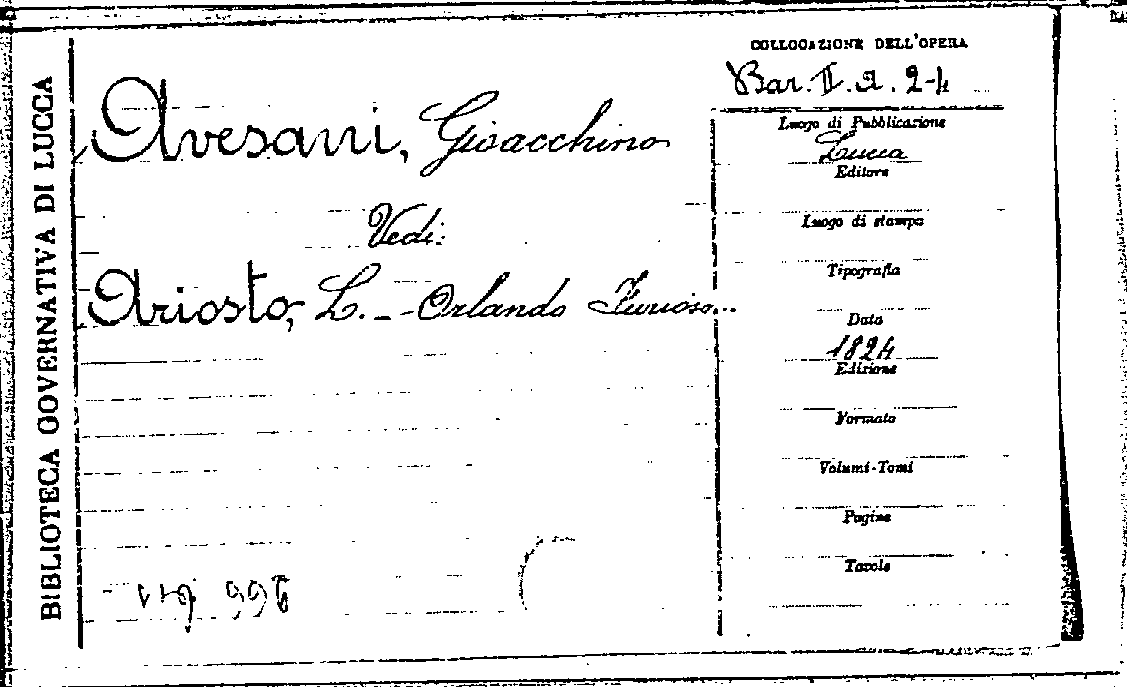 BIBLIOTECA GOVERNATIVA DI LUCCA
Avesani, Gioacchino
Vedi:
Ariosto, L. - Orlando Furioso...
COLLOCAZIONE DELL'OPERA
Bar. II. a. 2-4
Luogo di Pubblicazione
Lucca
Editore
Luogo di stampa
Tipografia
Data
1824
Edizione
Formato
Volumi-Tomi
Pagine
Tavole